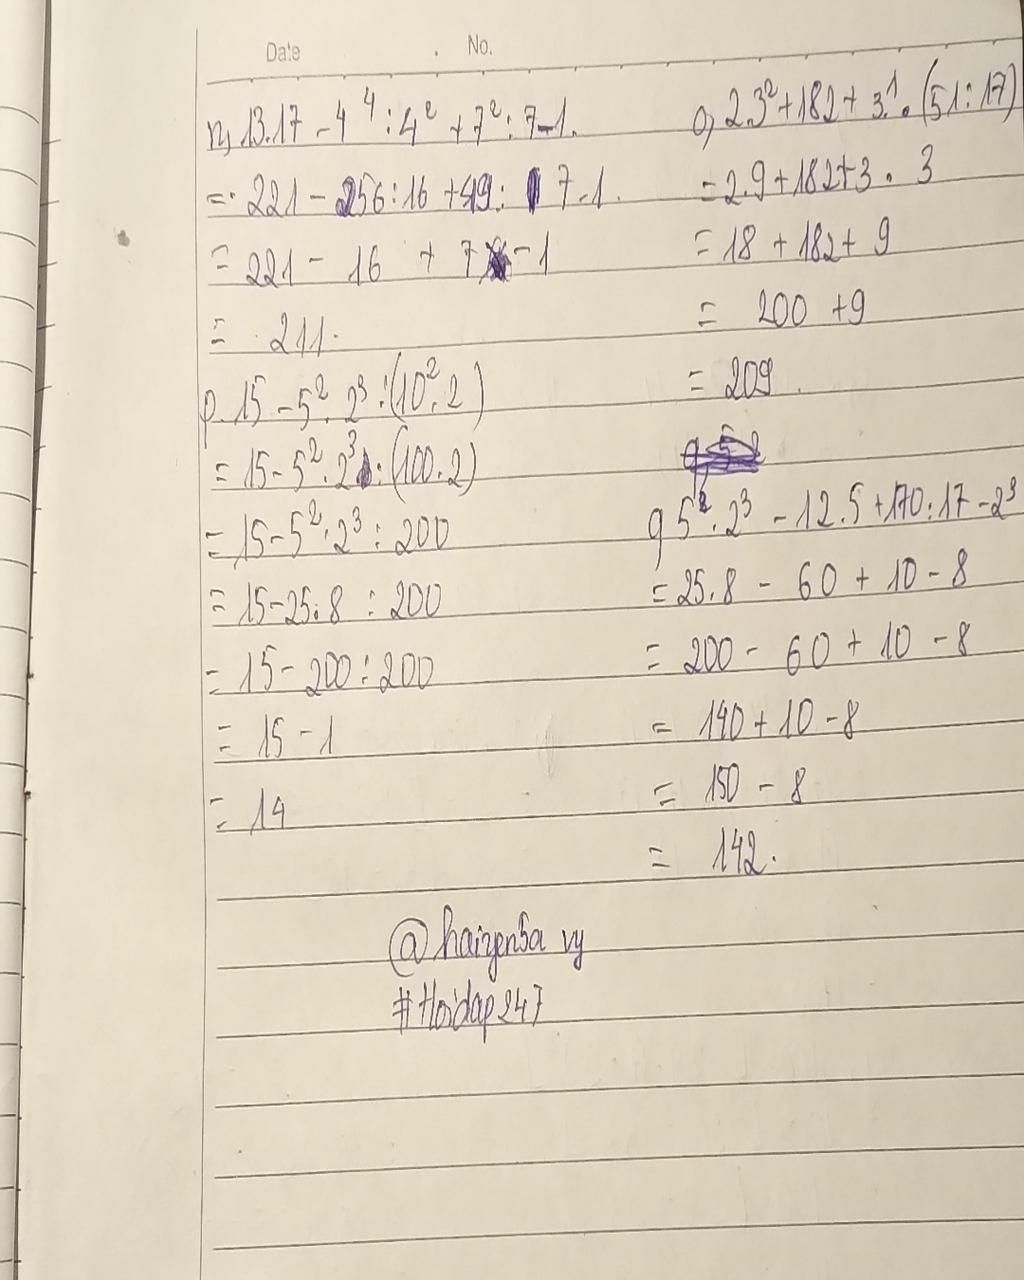 Date . No.
n, 13.17 - 4⁴ : 4² + 7² : 7 - 1.
= 221 - 256 : 16 + 49 : 7 - 1.
= 221 - 16 + 7 - 1
= 211.
p. 15 - 5² . 2³ : (10² . 2)
= 15 - 5² . 2³ : (100 . 2)
= 15 - 5² . 2³ : 200
= 15 - 25 . 8 : 200
= 15 - 200 : 200
= 15 - 1
= 14
o, 2.3² + 182 + 3.¹ . (51 : 17)
= 2.9 + 182 + 3 . 3
= 18 + 182 + 9
= 200 + 9
= 209.
q 5² . 2³ - 12.5 + 170 : 17 - 2³
= 25.8 - 60 + 10 - 8
= 200 - 60 + 10 - 8
= 140 + 10 - 8
= 150 - 8
= 142.
#Hoidap247